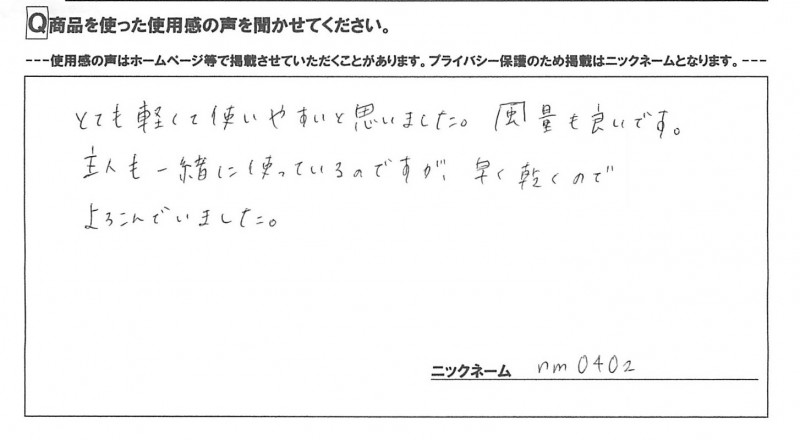 Q商品を使った使用感の声を聞かせてください。
---使用感の声はホームページ等で掲載させていただくことがあります。プライバシー保護のため掲載はニックネームとなります。---
とても軽くて使いやすいと思いました。風量も良いです。
主人も一緒に使っているのですが、早く乾くので
よろこんでいました。
ニックネーム nm0402